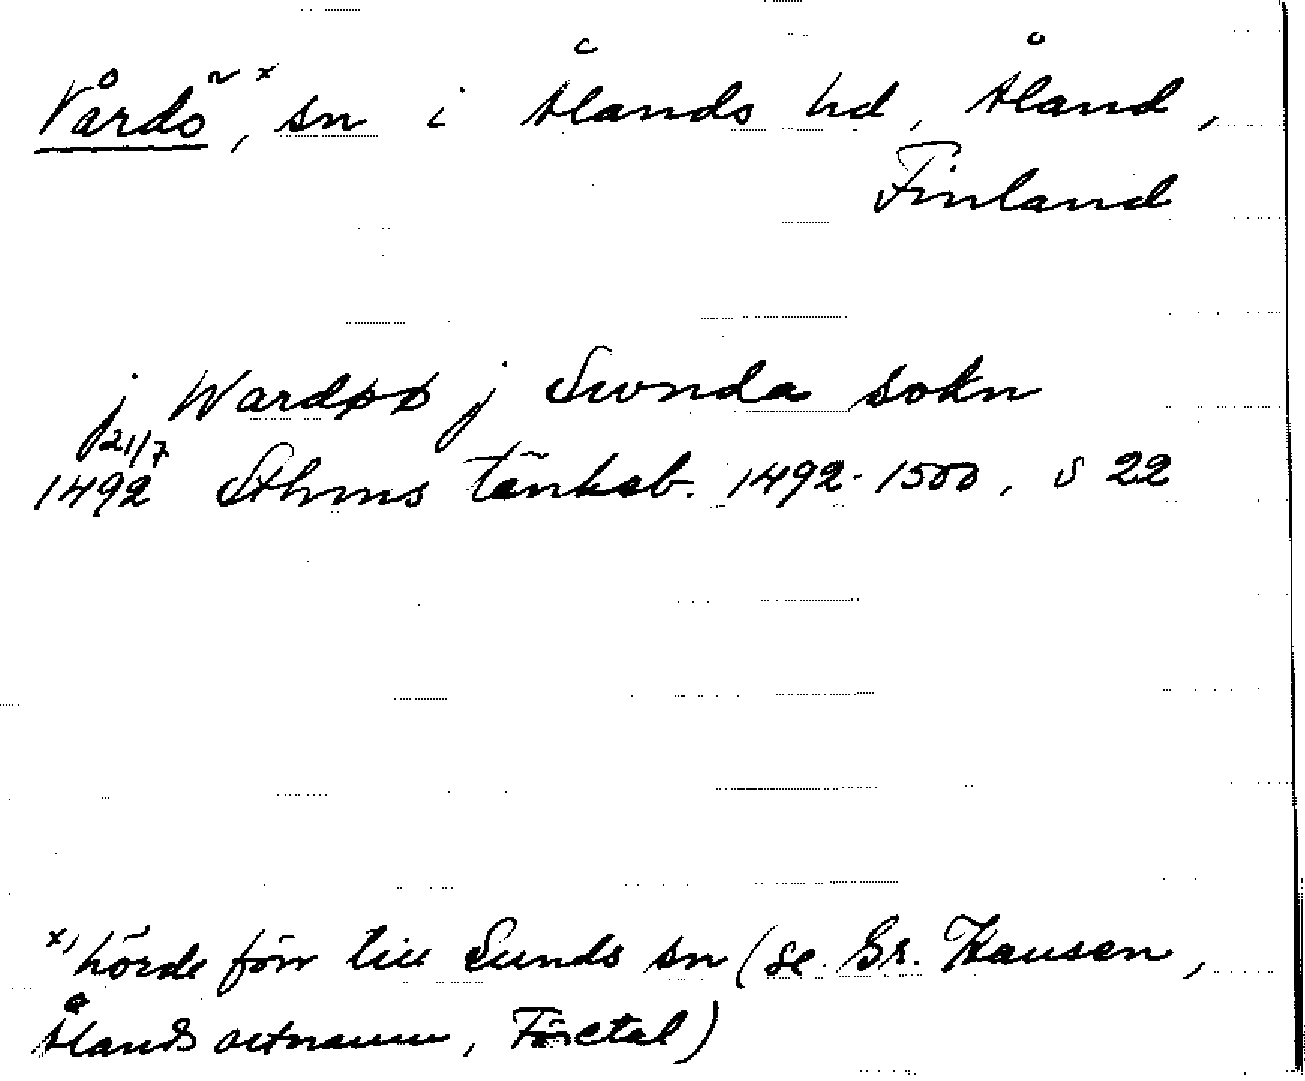 Vårdö x, sn i Ålands hd, Åland,
Finland
j Wardøø j Swnda sokn
21/7
1492 Sthms tänkeb. 1492-1500, s 22
x) hörde förr till Sunds sn (se Gr. Hausen,
Ålands ortnamn, Företal)